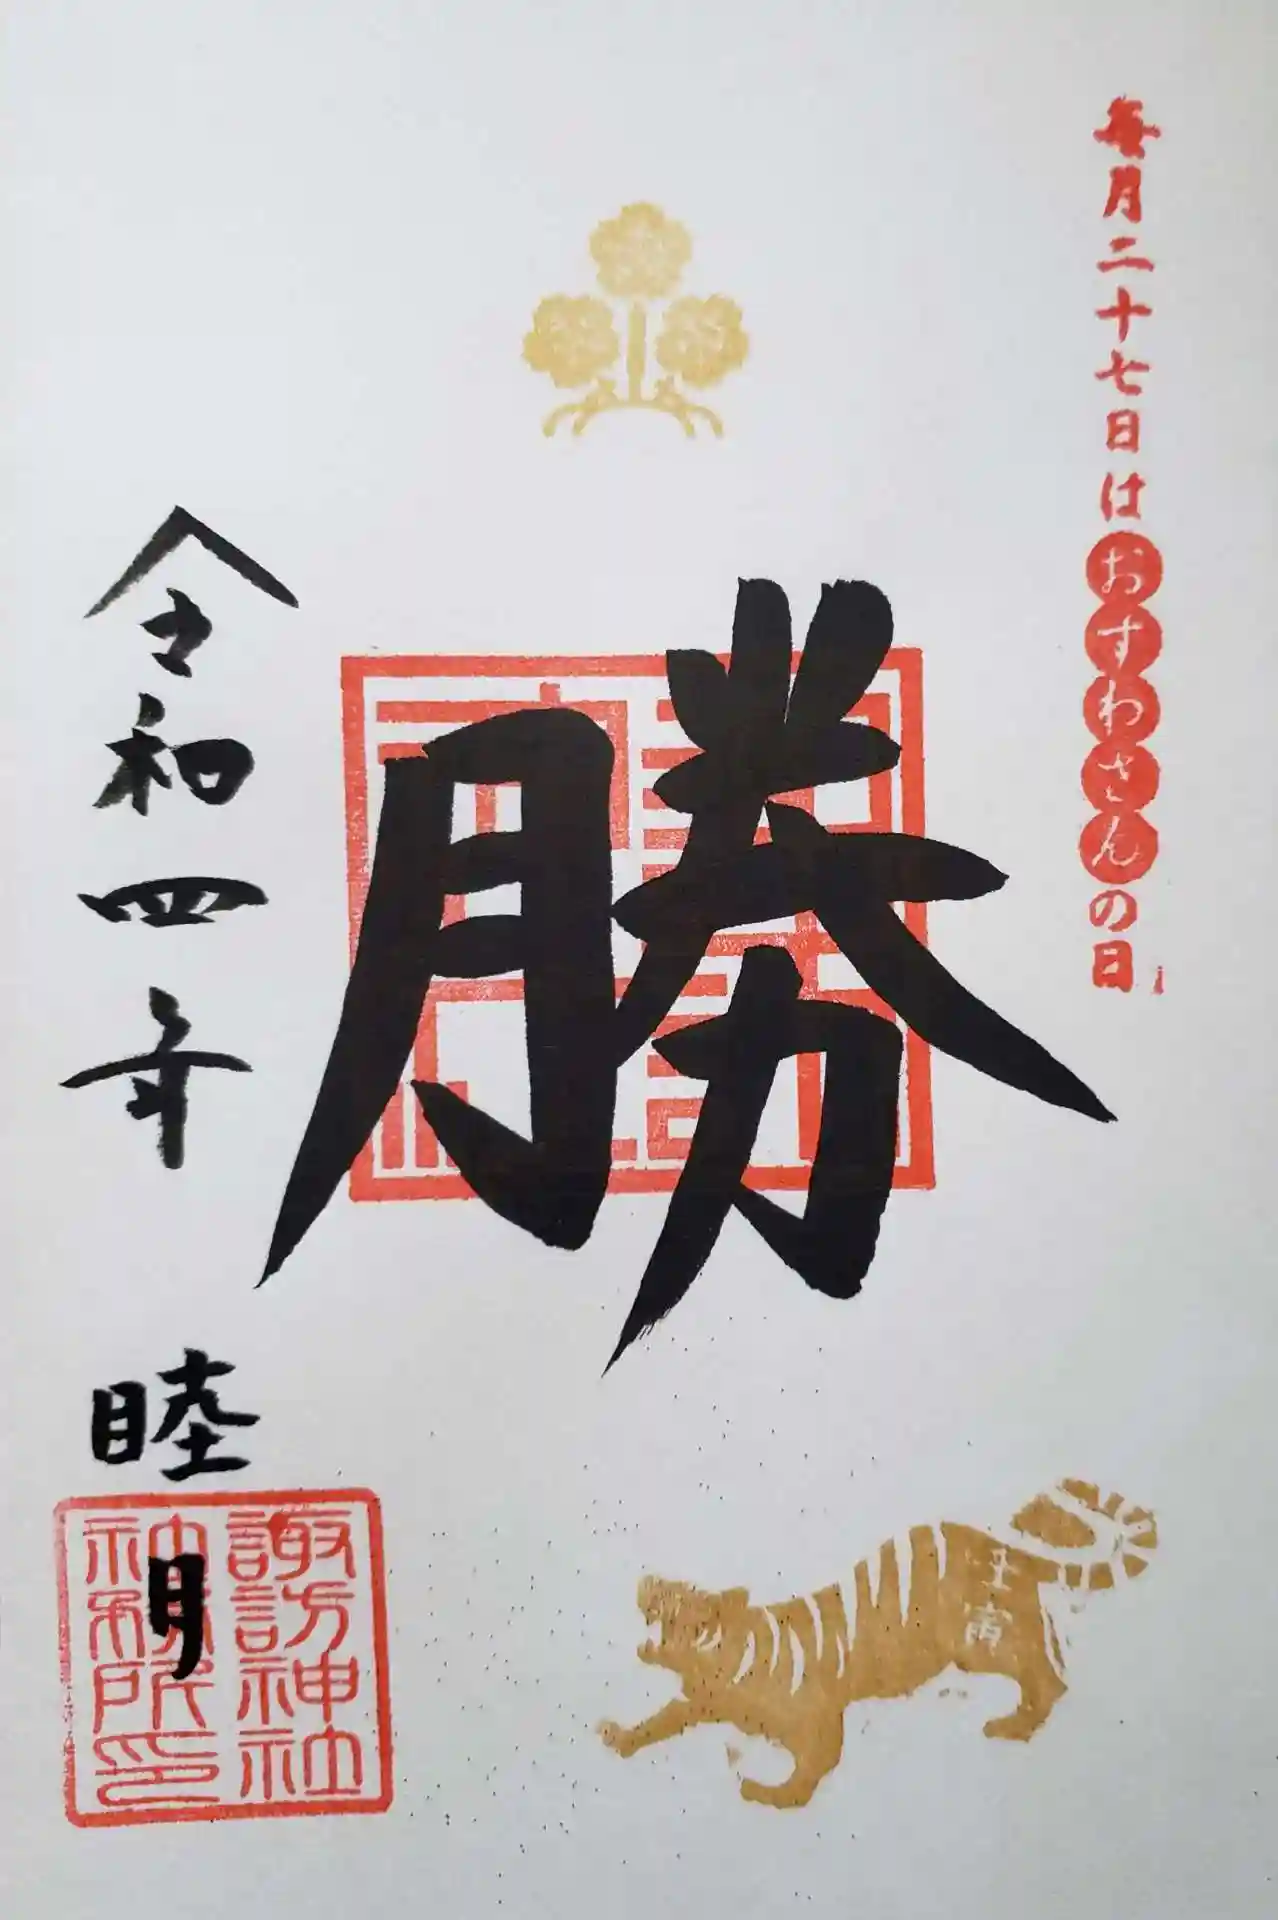 毎月二十七日はおすわさんの日
勝
令和四年 睦月
壬寅
諏訪神社
社務所印